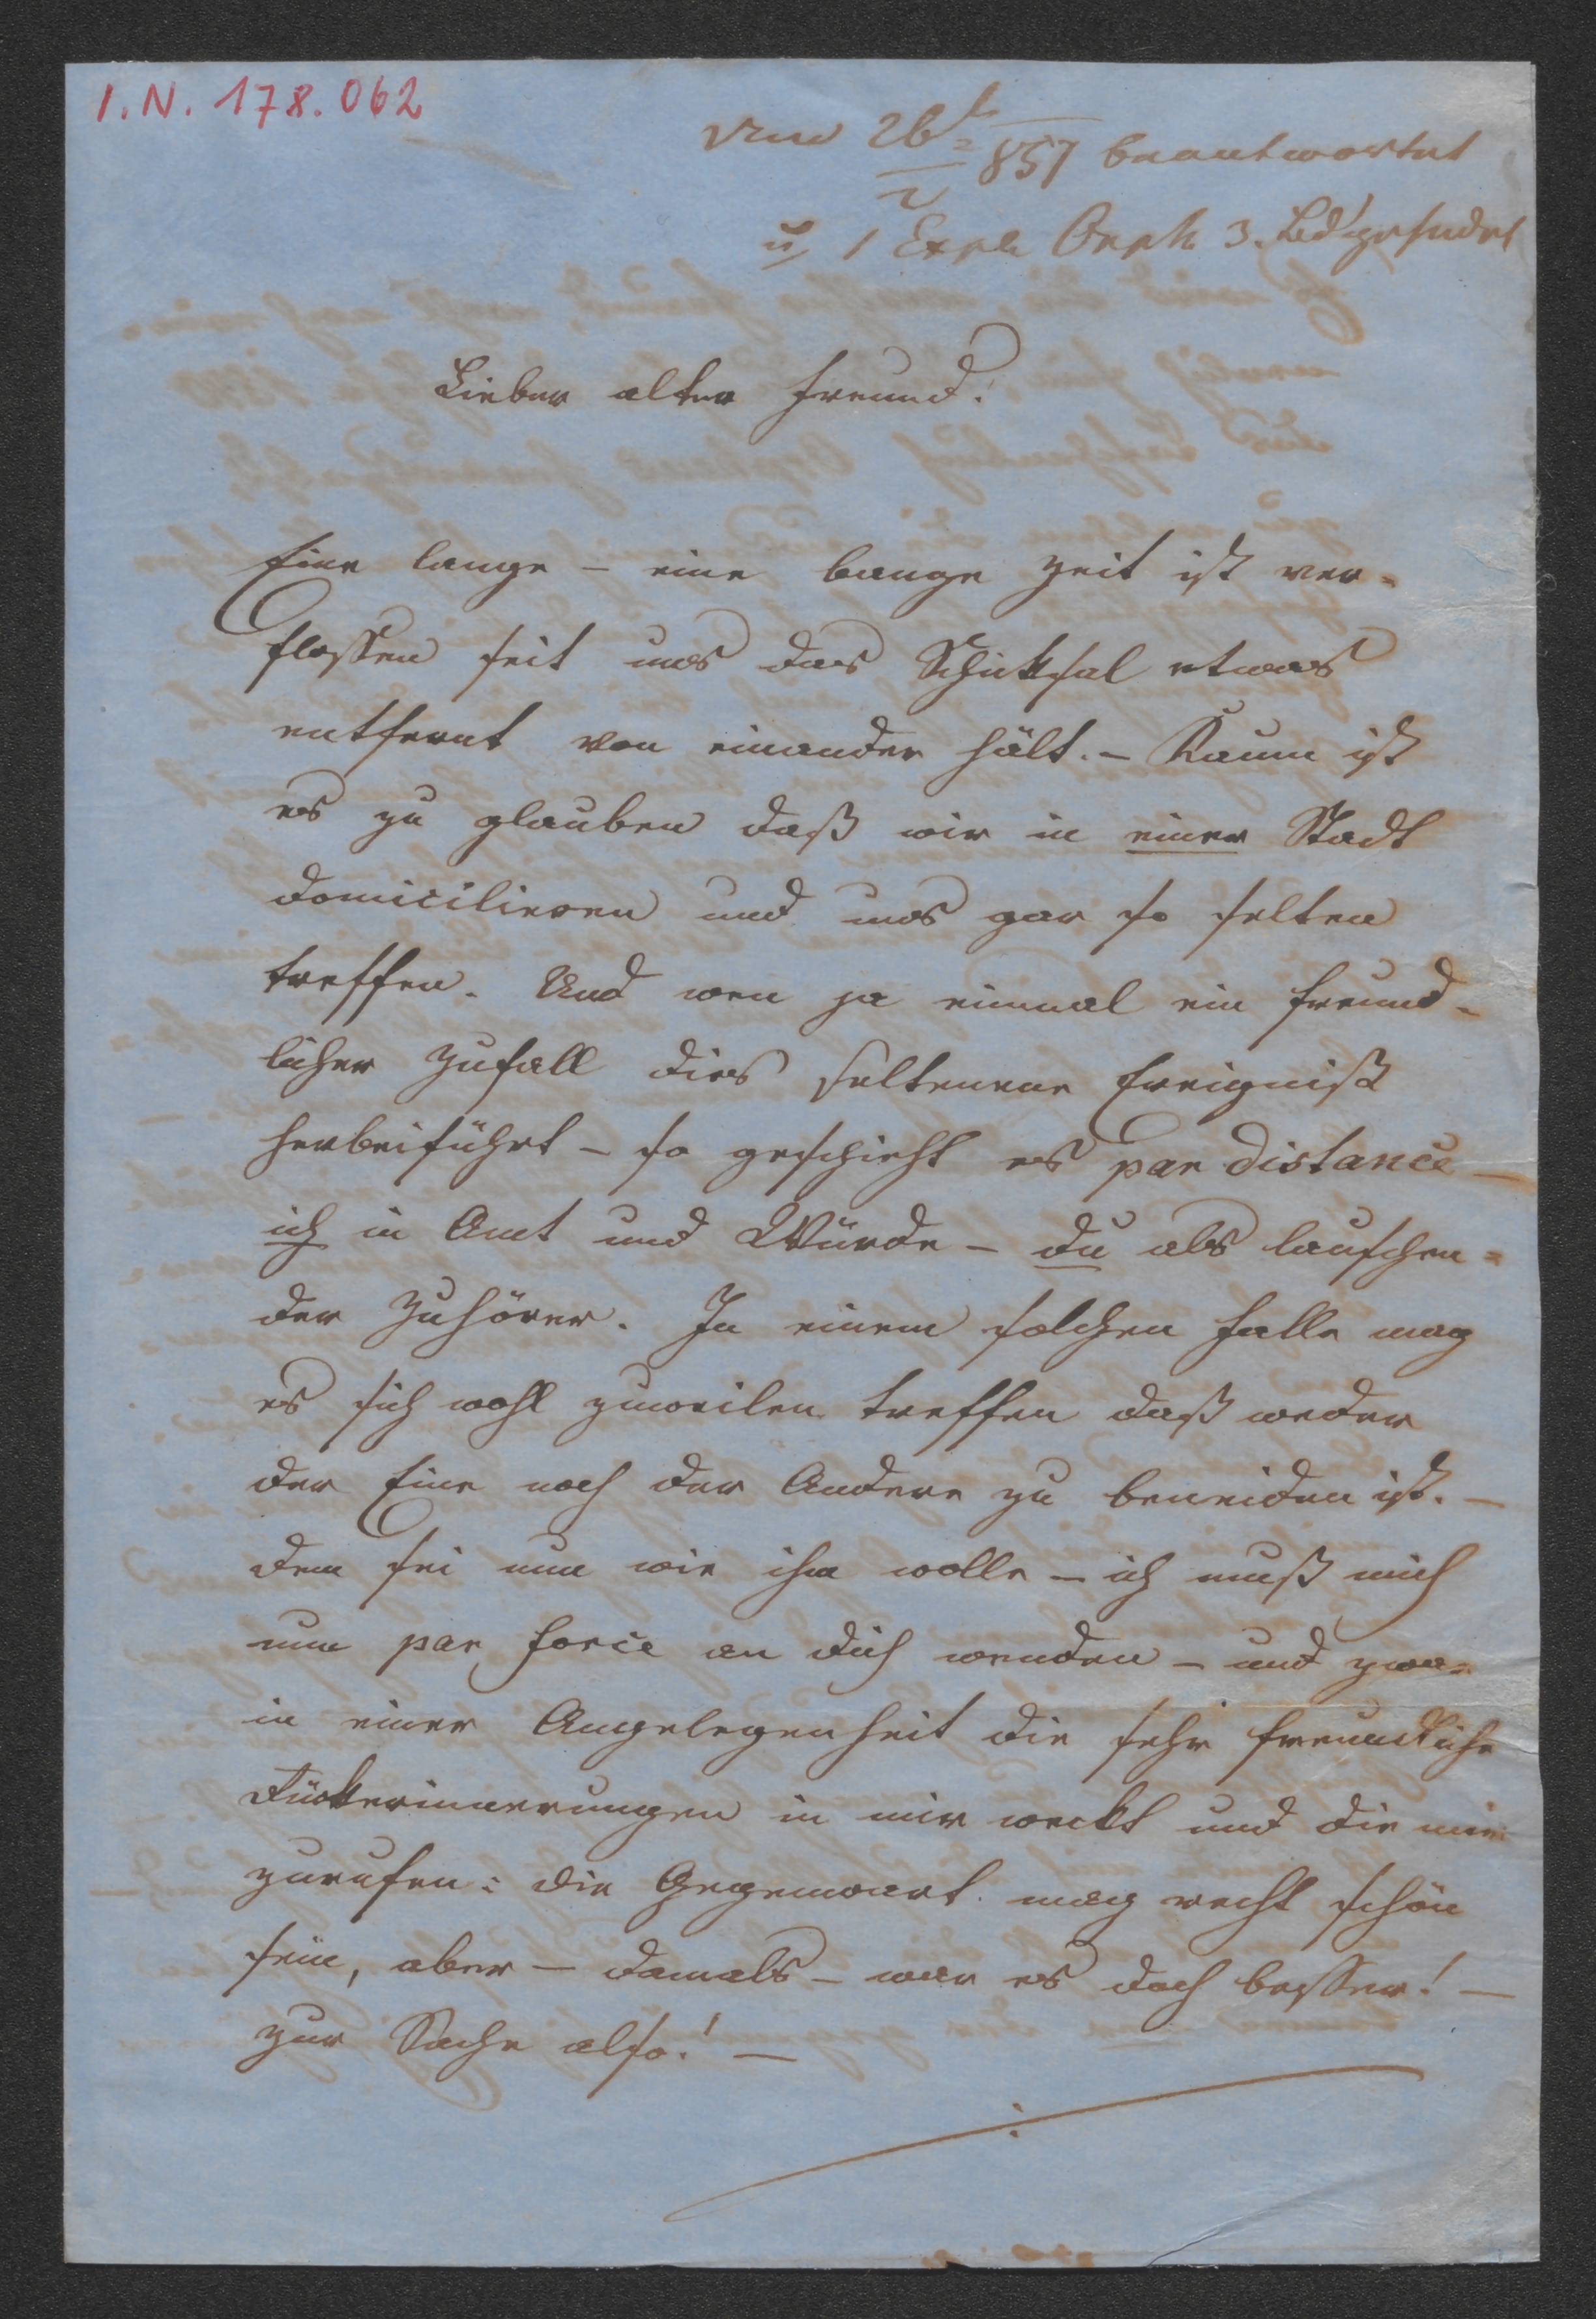 I.N. 178.062
26t 857 beantwortet
u 1 Expl Orph 3. Bd gesendet
Lieber alter Freund!
Eine lange – eine bange Zeit ist ver=
flossen seit uns das Schicksal etwas
entfernt von einander hält. – Kaum ist
es zu glauben daß wir in einer Stadt
domicilieren und uns gar so selten
treffen. Und wen ja einmal ein freund=
licher Zufall dies seltenene Ereigniß
herbeiführt – so geschieht es par distance –
ich in Amt und Würde – du als lauschen=
der Zuhörer. In einem solchen Falle mag
es sich wohl zuweilen treffen daß weder
der Eine noch der Andere zu beneiden ist. –
dem sei nun wie ihm wolle – ich muß mich
nun par force an dich wenden – und zwar
in einer Angelegenheit die sehr freundliche
Rückerinnerungen in mir weckt und die mir
zurufen: die Gegenwart mag recht schön
sein, aber – damals – war es doch besser! –
zur Sache also! –